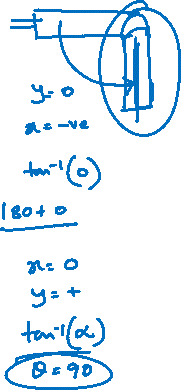 y = 0
x = -ve
tan⁻¹(0)
180 + 0
x = 0
y = +
tan⁻¹(α)
θ = 90